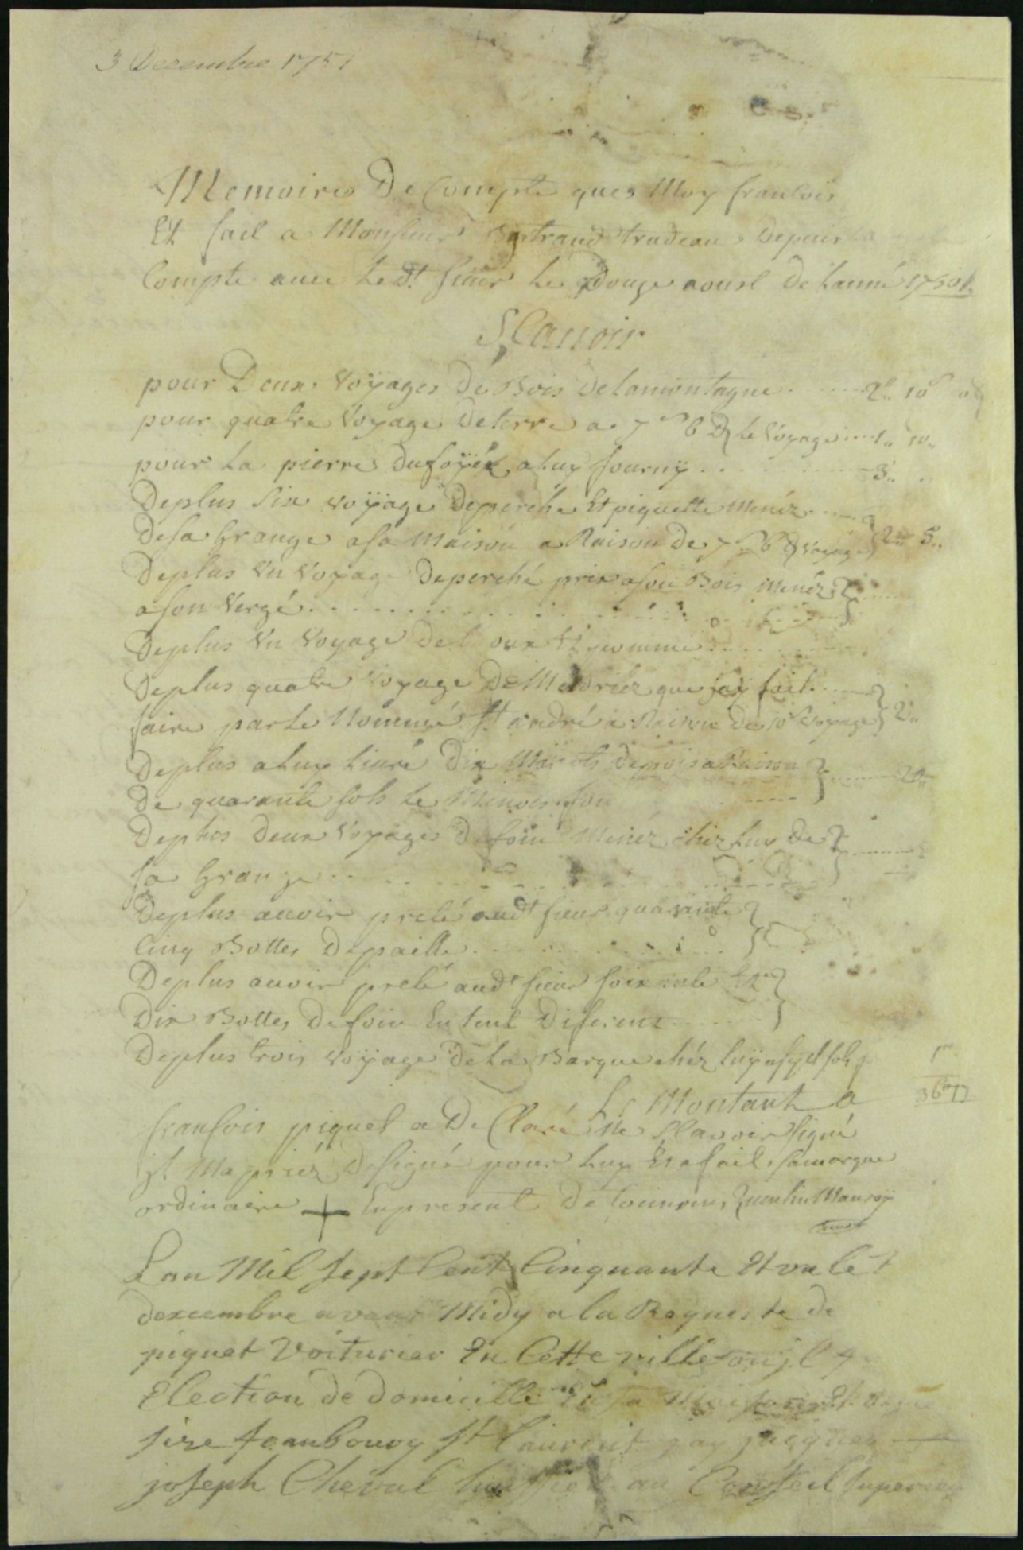 3 Decembre 1751
Memoires De Compte ques Moy francois
Et fait a Monsieur Bertrand trudeau Depuis
Compte avec Le dt sieur Le Douze aoust De Lanné 1750
SCauoir
pour Deux Voÿages De Bois De lamontagne 2" 10s
pour quatre Voyage De terre a 7s 6d le Voyage 1" 10"
pour La pierre a luy fourny 3"
Deplus Six Voÿage Deperche Et piquette Menéz
De sa Grange a sa Maison a Raison De 7s 6d Voyage 2" 5"
Deplus Vn Voyage Deperché prix a son Bois Menéz
a son Vergé
Deplus Vn Voyage De
Deplus quatre Voyage De Madriéz que jay fait
faire par Le Nommé St andré a Raison De 10s Voyage 2"
Deplus a Luy Liuré Dix Minots Depois a Raison
De quarante sols Le Minot 20"
Deplus Deux Voÿage De foin Menéz chéz Luy De
sa Grange
Deplus auoir preté audt sieur quarante
Cinq Bottes Depaille
Deplus auoir preté audt sieur soixante Et
Dix Bottes De foin En tout Diferens
Deplus trois Voÿage De La Barque chéz Luÿ
Le Montant a 36"
francois piquet a De Claré Ne Scauoir Signé
Et Ma priéz De signé pour Luy Et a fait sa marque
ordinaire + En present De temoins quentin Mauraÿ
Lan Mil Sept Cent Cinquante Et vn le
dexcembre avant Midy a la Requeste de
piquet Voiturier En Cette ville ou jl
Election de domicille En sa
size feaubourg St Laurent
joseph Cheval huissier au Conseil superieur